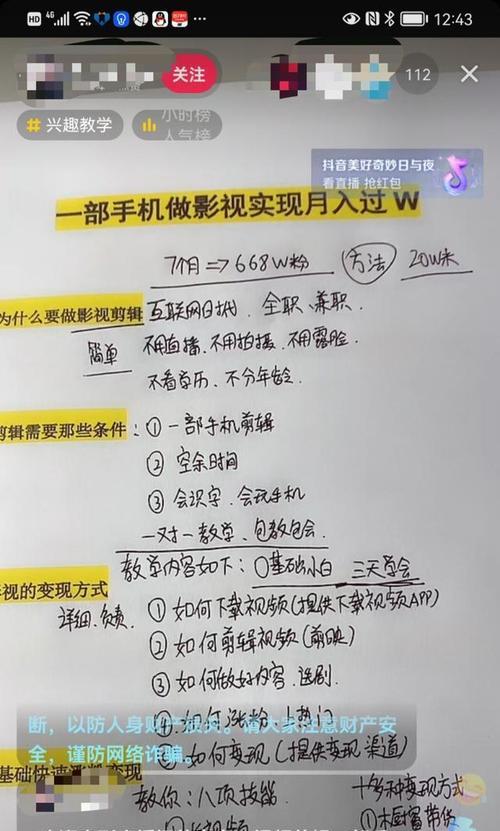 HD 4G 12:43
关注 112
# 兴趣教学 小时榜
人气榜
抖音美好奇妙日与夜
看直播 抢红包
一部手机做影视实现月入过 W
7个月⇒668W粉 方法 20W米
为什么要做影视剪辑 互联网时代、全职、兼职
简单 不用直播、不用拍摄、不用露脸、
不看学历、不分年龄、
剪辑需要那些条件：①一部手机剪辑
② 空余时间
③ 会识字、会玩手机
一对一教学、包教包会、
教学内容如下：0基础小白 三天学会
影视的变现方式
详细、负责、 ① 如何下载视频(提供下载视频APP)
② 如何剪辑视频(剪映)
③ 如何做好内容、选剧、
④ 如何涨粉、上热门
断，以防人身财产损失。请大家注意财产安
全，谨防网络诈骗。
如何变现(提供变现渠道)
基础快速 变现
教你：八项技能 十多种变现方式